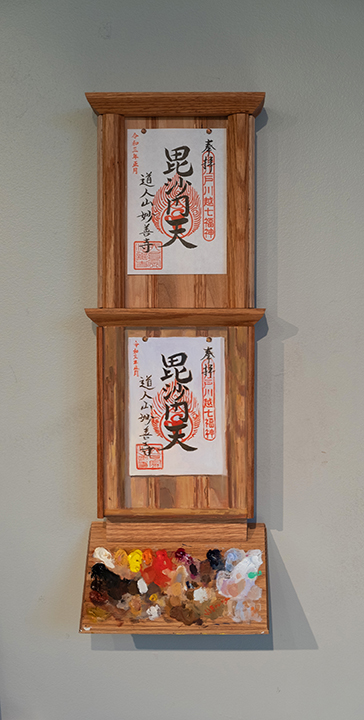 奉拝
戸川越七福神
毘沙門天
道人山妙善寺
令和三年正月
奉拝
戸川越七福神
毘沙門天
道人山妙善寺
令和三年正月